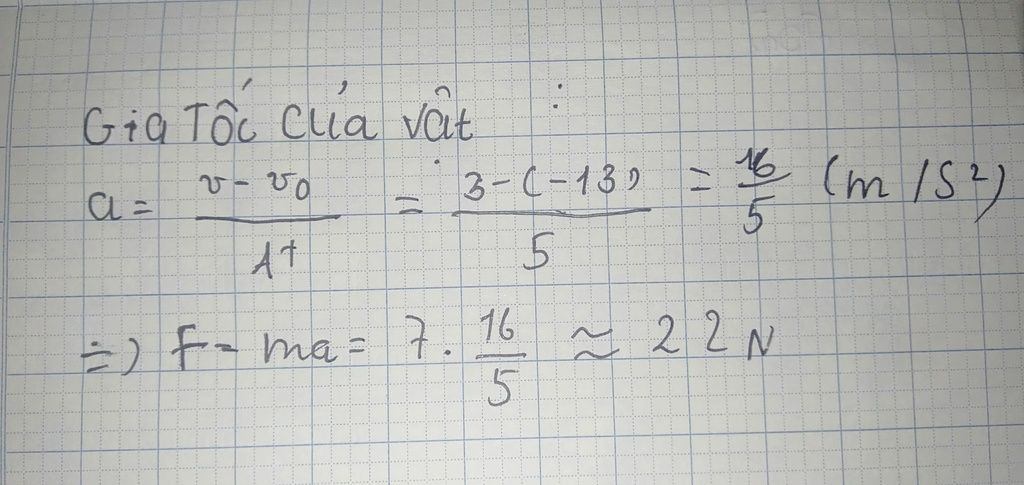 Gia Tốc Của vật :
a = \frac{v - v_0}{Δt} = \frac{3 - (-13)}{5} = \frac{16}{5} (m/s²)
=> F = ma = 7 . \frac{16}{5} ≈ 22 N